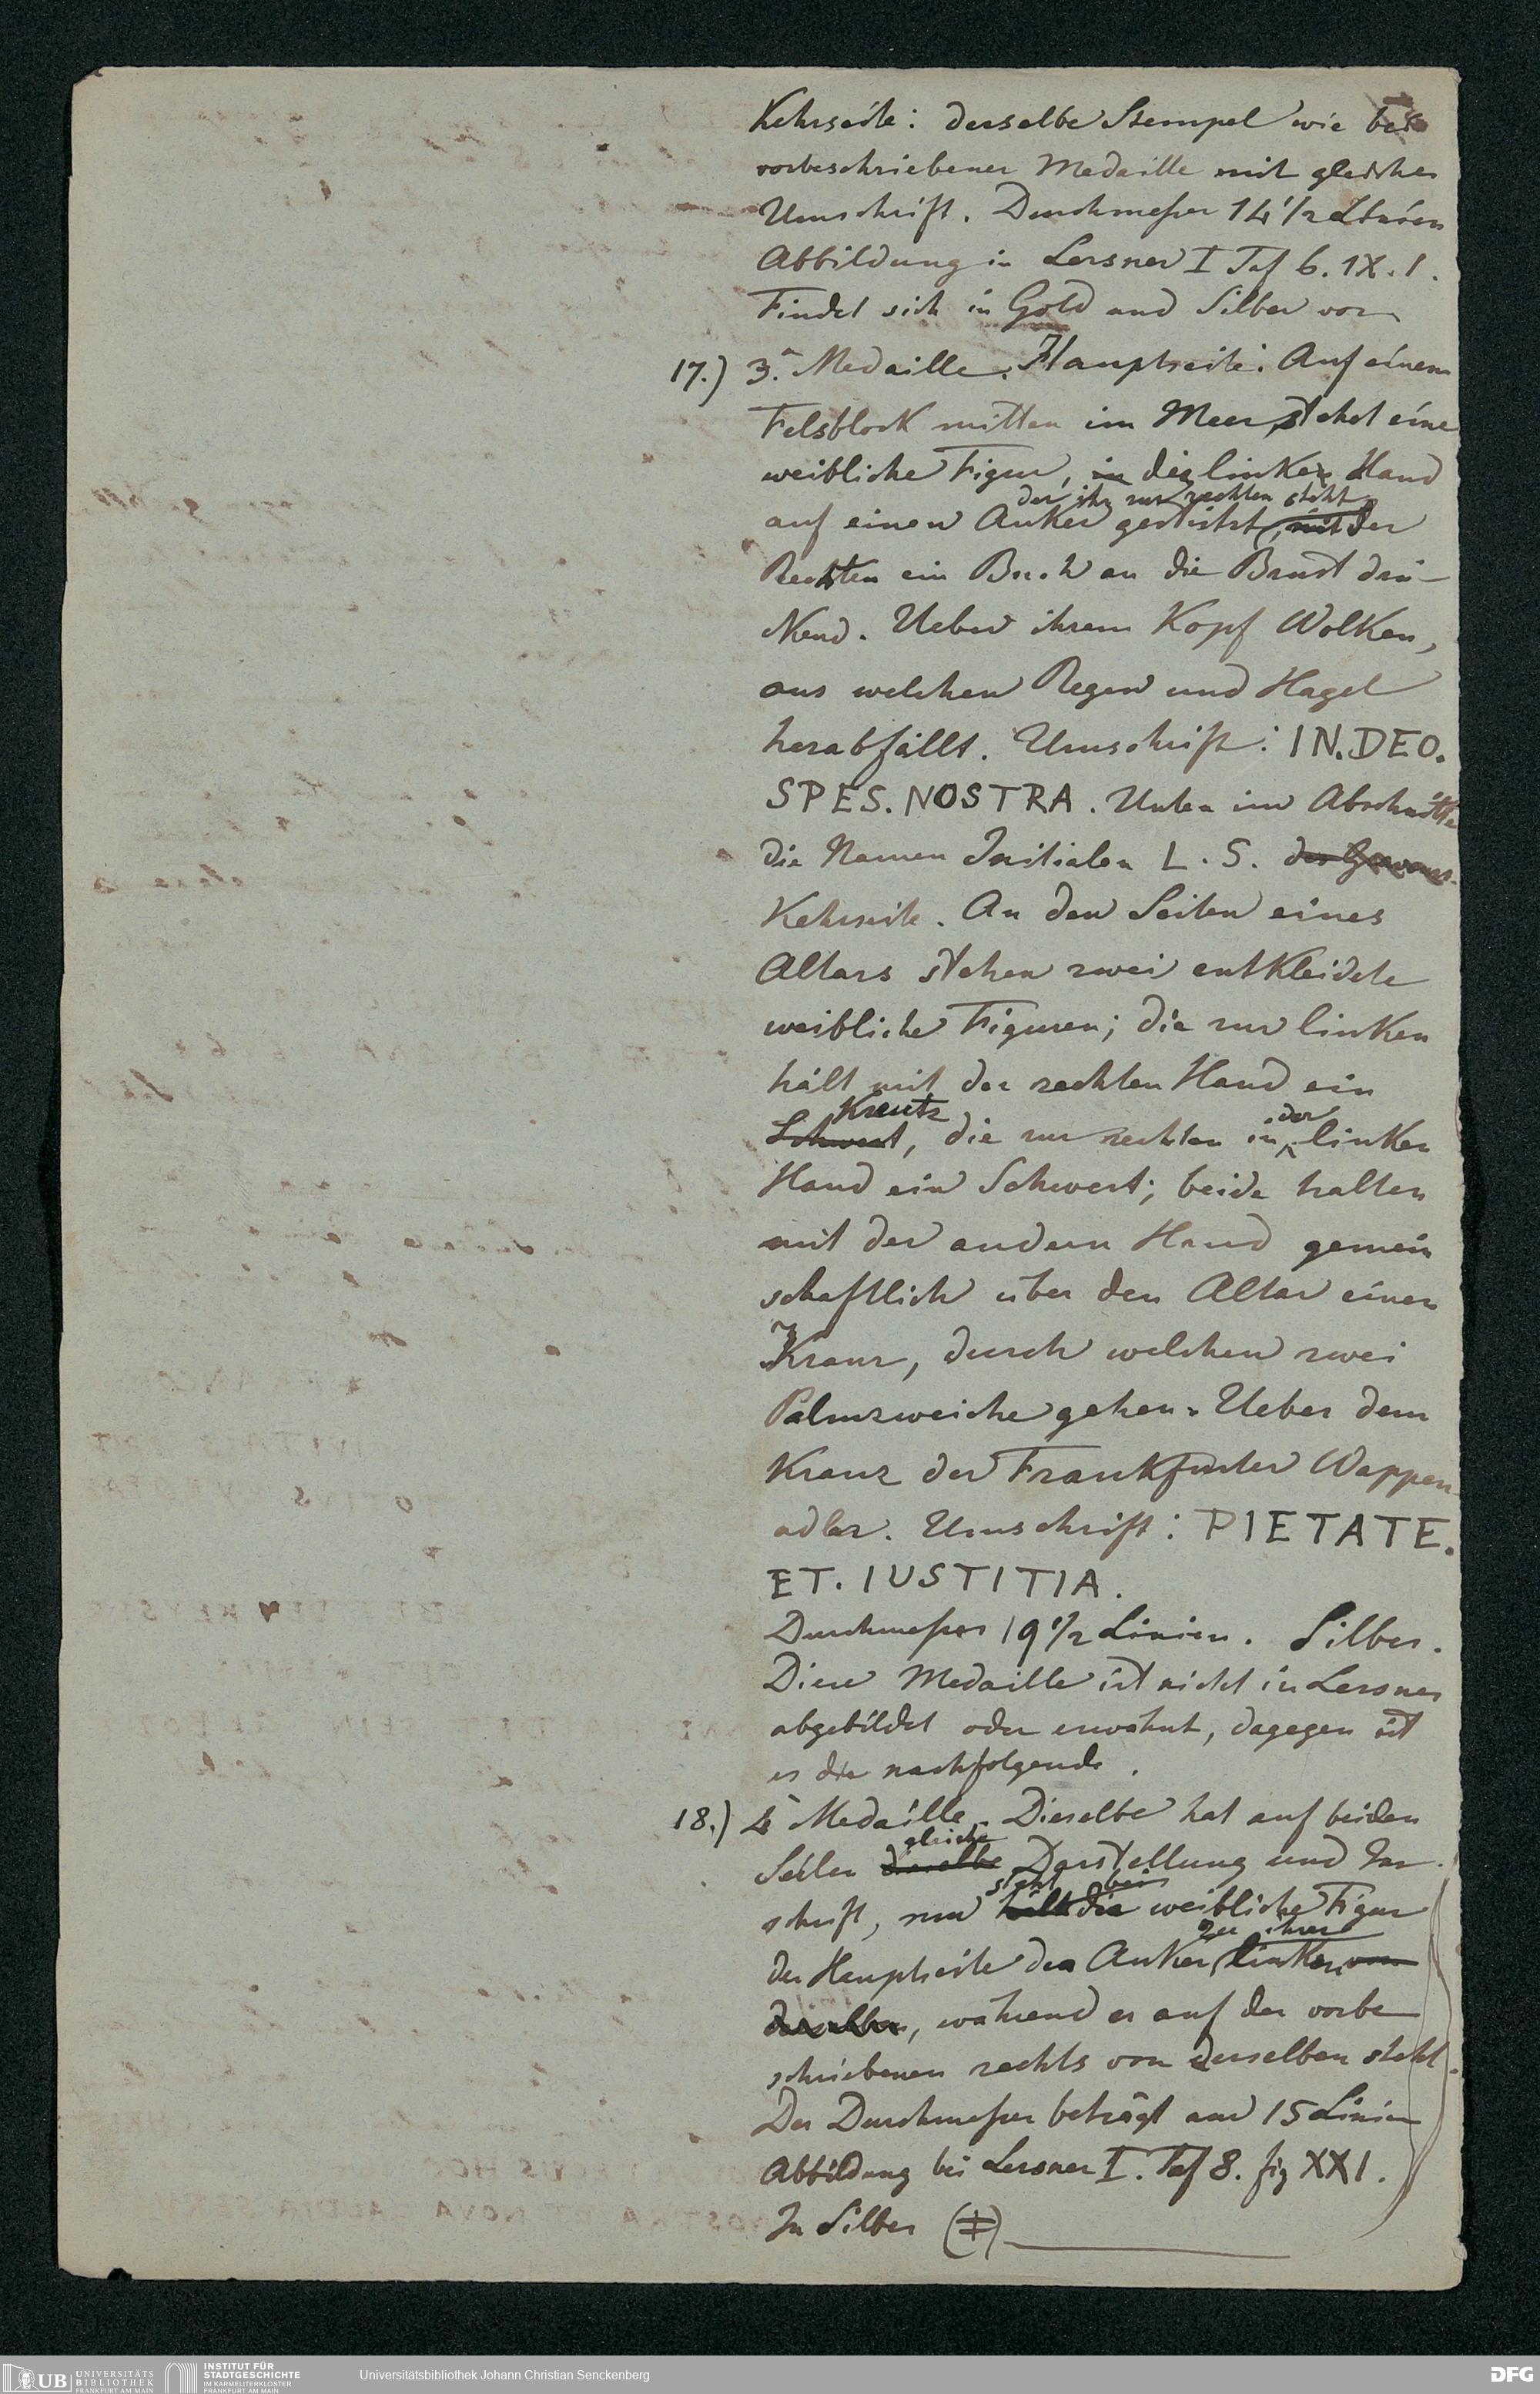 Kehrseite: derselbe Stempel wie bei
vorbeschriebener Medaille mit gleicher
Umschrift. Durchmeßer 14 1/2 Linien
Abbildung in Lersner I Taf 6. IX. 1.
Findet sich in Gold und Silber vor
17.) 3.ᵉ Medaille. Hauptseite: Auf einem
Felsblock mitten im Meer, stehet eine
weibliche Figur, in die linke Hand
der ihr zur rechten steht
auf einen Anker gestützt, mit der
Rechten ein Buch an die Brust drü-
ckend. Ueber ihrem Kopf Wolken,
aus welchen Regen und Hagel
herabfällt. Umschrift: IN. DEO.
SPES. NOSTRA. Unten im Abschnitte
die Namen Initialen L. S.
Kehrseite. An den Seiten eines
Altars stehen zwei entkleidete
weibliche Figuren; die zur linken
hält mit der rechten Hand ein
Kreutz der
Schwert, die zur rechten in linker
Hand ein Schwert; beide halten
mit der andern Hand gemein
schaftlich über den Altar einen
Kranz, durch welchen zwei
Palmzweiche gehen. Ueber dem
Kranz der Frankfurter Wappen-
adler. Umschrift: PIETATE.
ET. IUSTITIA.
Durchmeßer 19 1/2 Linien. Silber.
Diese Medaille ist nicht in Lersner
abgebildet oder erwähnt, dagegen ist
es die nachfolgende.
18.) 4ᵉ Medaille. Dieselbe hat auf beiden
gleiche
Seiten dieselbe Darstellung und In-
steht bei
schrift, nur hält die weibliche Figur
zur ihrer
der Hauptseite der Anker, linken von
derselben, während er auf der vorbe
schriebenen rechts von derselben steht.
Der Durchmeßer beträgt nur 15 Linien
Abbildung bei Lersner I. Taf 8. fig XXI.
In Silber (‡)
UB UNIVERSITÄTS
BIBLIOTHEK
FRANKFURT AM MAIN
INSTITUT FÜR
STADTGESCHICHTE
IM KARMELITERKLOSTER
FRANKFURT AM MAIN
Universitätsbibliothek Johann Christian Senckenberg
DFG